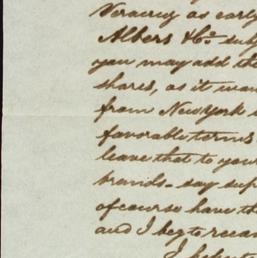 Veracruz as early
Albers & Co. subj
you may add the
shares, as it wou
from New York
favorable terms
leave that to your
brands - say sup
of course have th
and I beg to recom